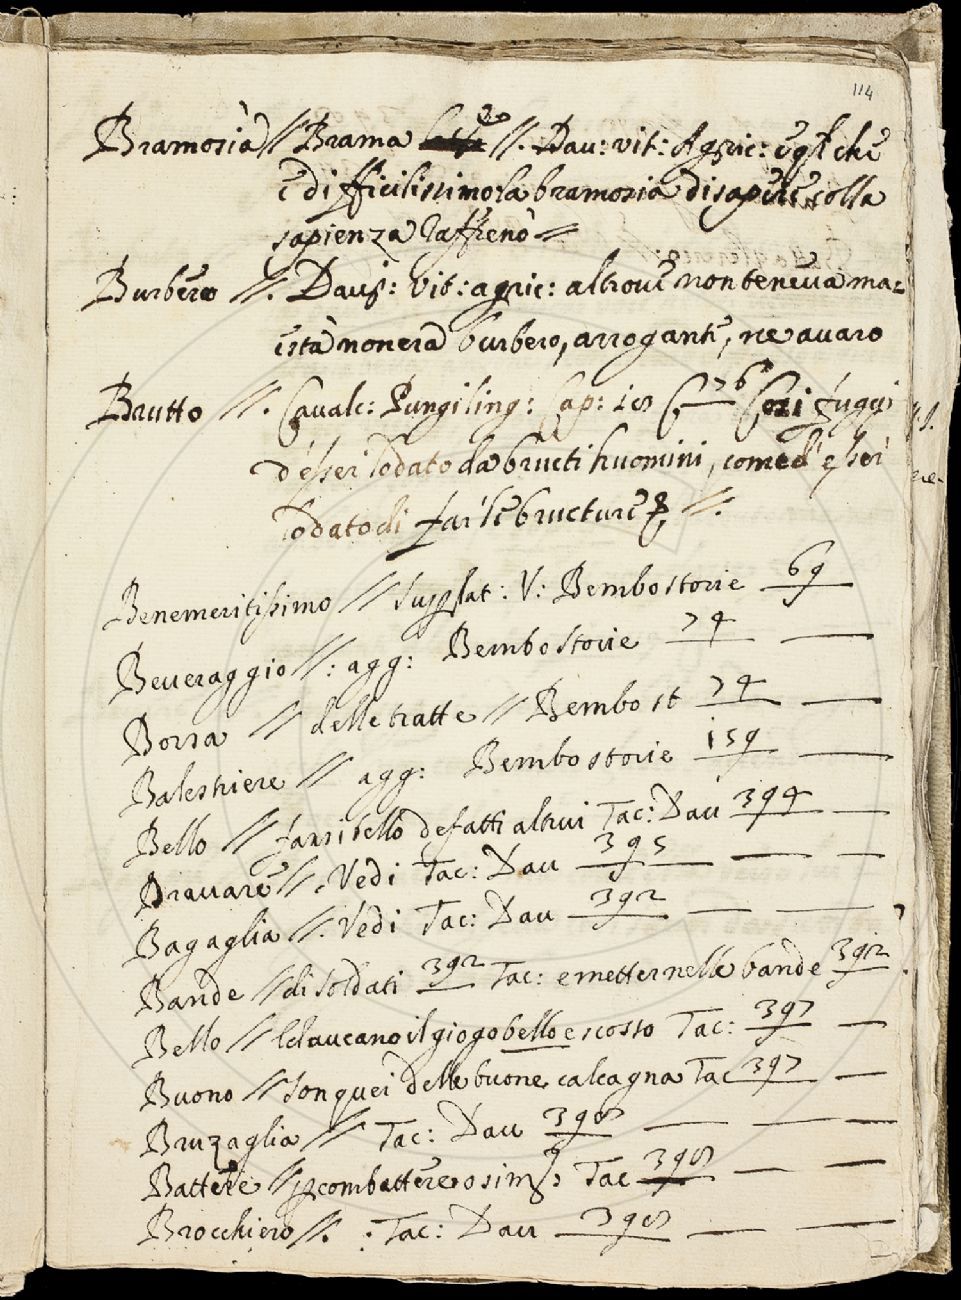 114
Bramosia // Brama //. Dav: vit: Agric: egli che
è difficilissimo: la bramosia di sapere colla
sapienza raffrenò
Burbero //. Davs: vit: agric: altrove non teneva ma=
està non era burbero, arrogante, ne avaro
Brutto //. Cavalc: Pungiling: Cap: 76 Cosi fuggi
d'esser lodato da bructi huomini, come d'esser
lodato di far le bructure //.
Benemeritissimo // supplat: V: Bembo storie 69
Beveraggio //: agg: Bembo storie 74
Borsa // delle tratte // Bembo st 74
Balestriere // agg: Bembo storie 159
Bello // farsi bello de fatti altrui Tac: Dav 394
Bravare //. Vedi Tac: Dav 395
Bagaglia //. Vedi Tac: Dav 392
Bande // di soldati 392 Tac: e metter nelle bande 392
Bello // il giogo bello e scosso Tac: 397
Buono // son quei delle buone calcagna Tac 397
Bruzaglia // Tac: Dav 398
Battere // combattere Tac 398
Brocchiero //. Tac: Dav 398